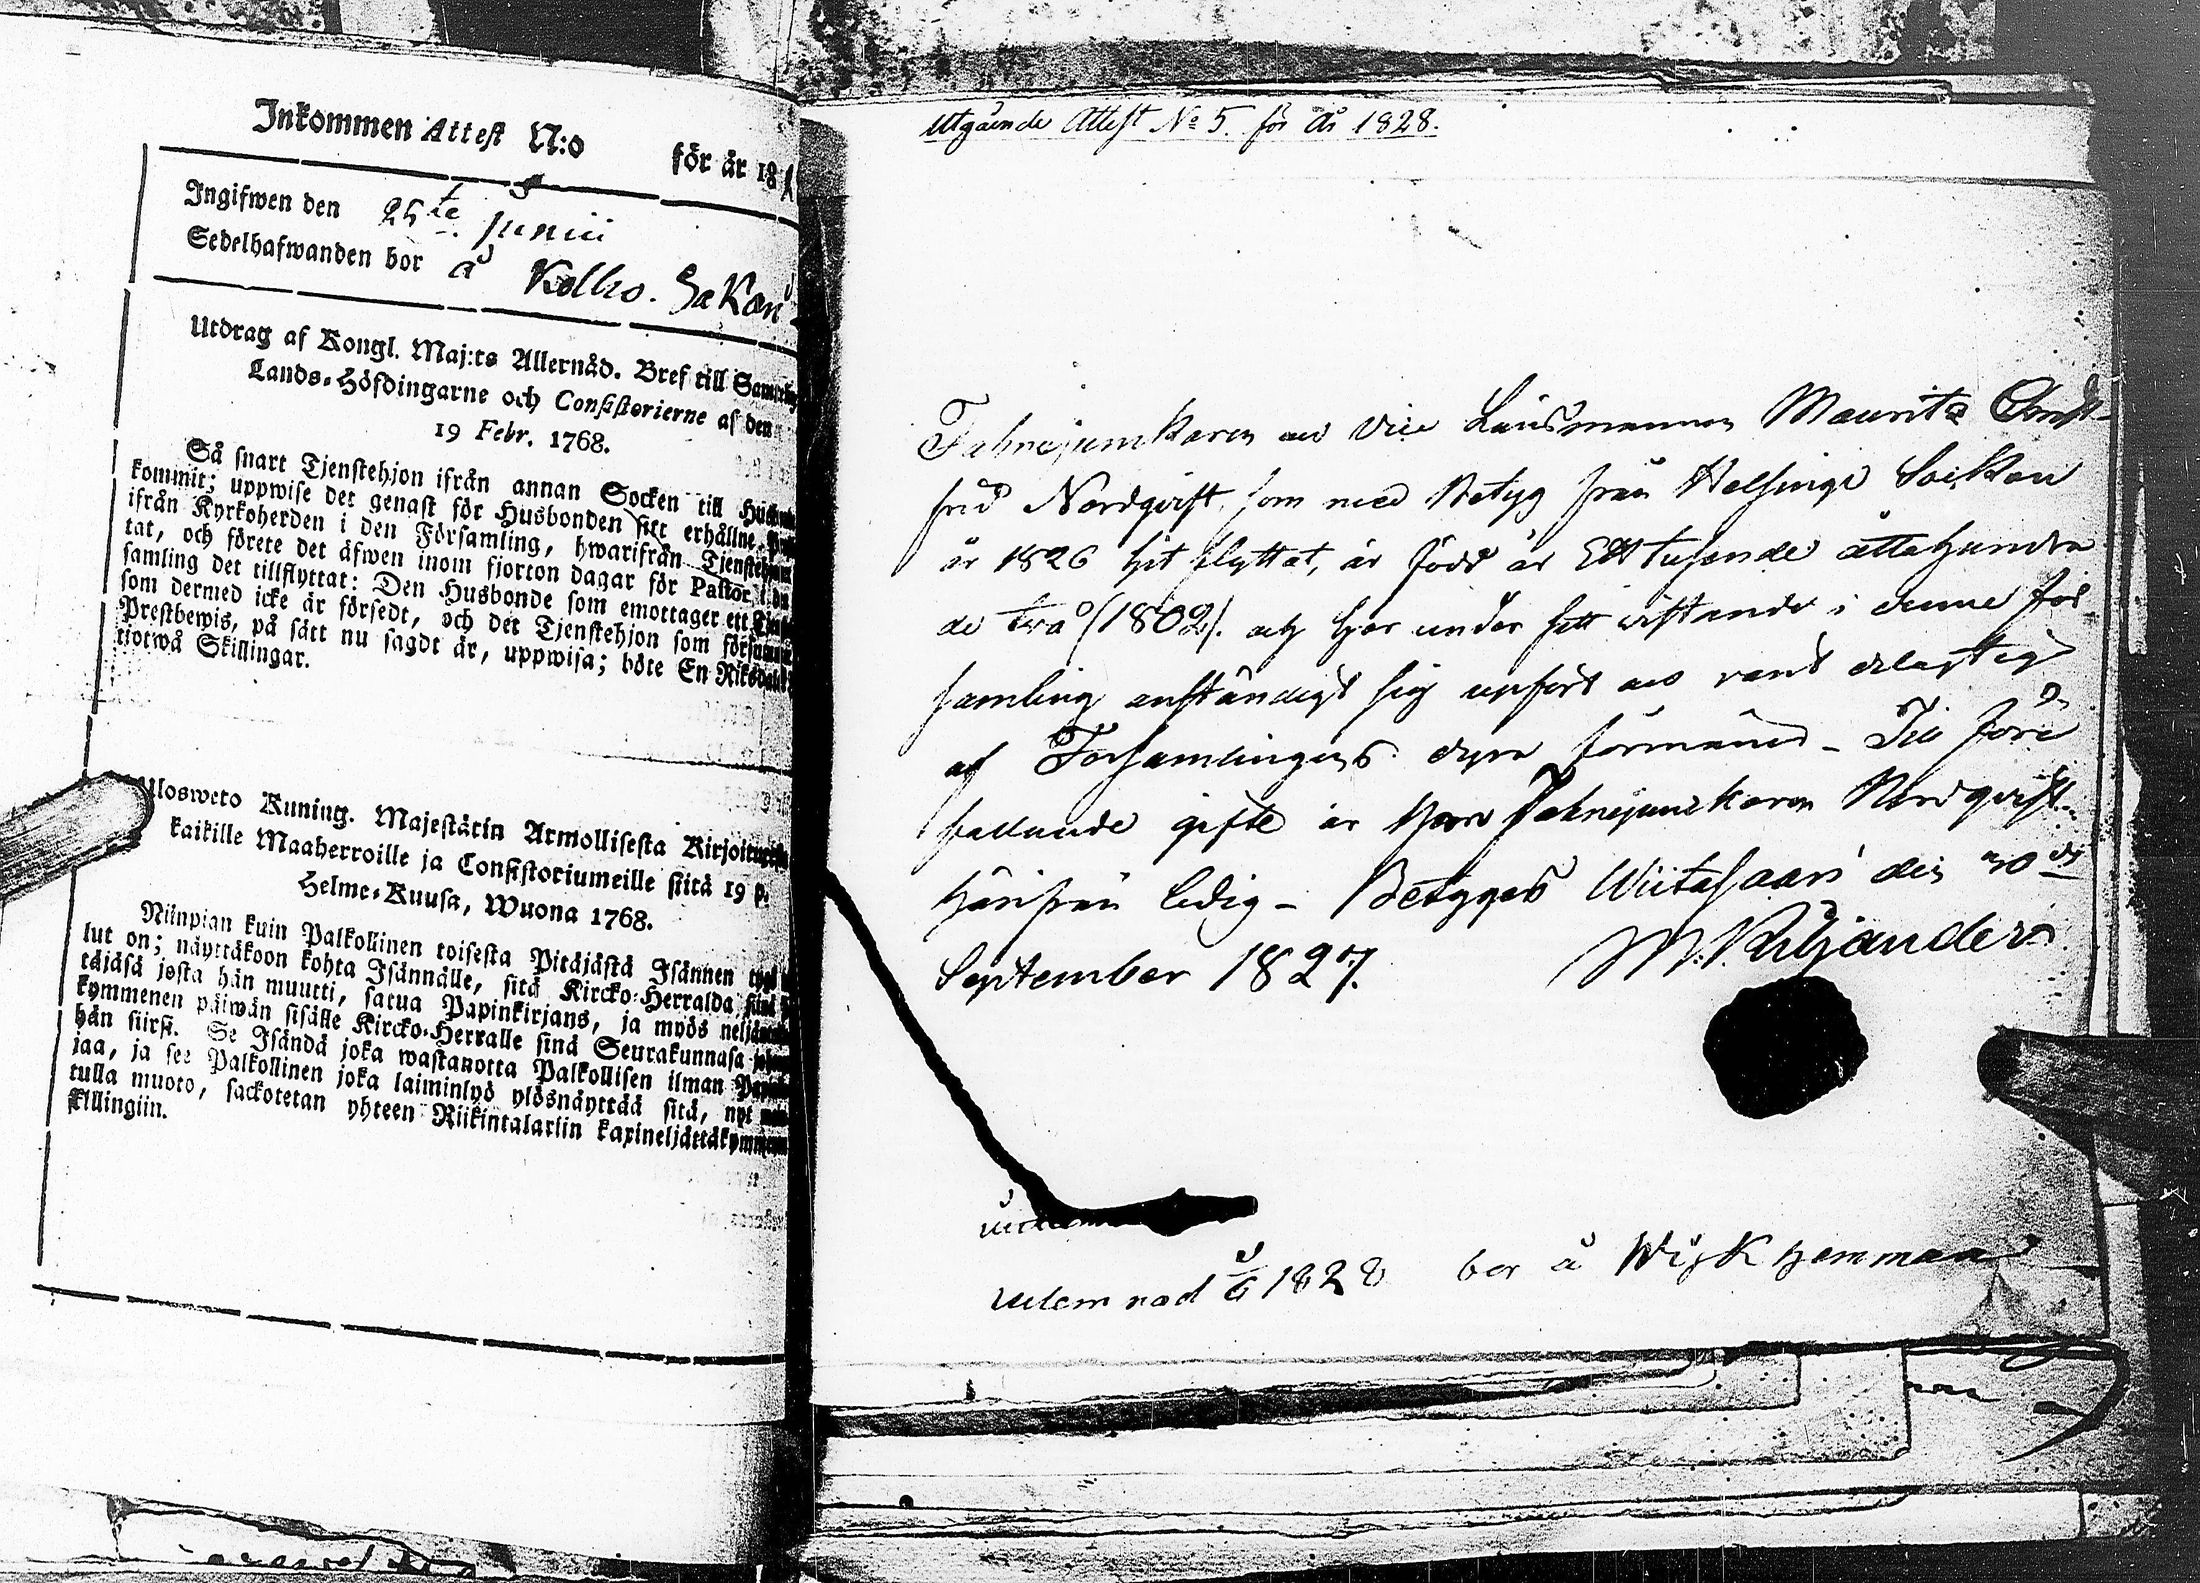 Inkommen Attest N:o för år 18
Ingifwen den 25te Junii
Sedelhafwanden bor å Kolho. Sakari
Utdrag af Kongl. Maj:ts Allernåd. Bref till
Lands-Höfdingarne och Consistorierne af den
19 Febr. 1768.
Så snart Tjenstehjon ifrån annan Socken till
kommit; uppwise det genast för Husbonden sitt erhållne
ifrån Kyrkoherden i den Församling, hwarifrån
tat, och förete det äfwen inom fjorton dagar för Pastor i
samling det tillflyttat: Den Husbonde som emottager ett
som dermed icke är försedt, och det Tjenstehjon som
Prestbewis, på sätt nu sagdt är, uppwisa; böte En Riksdaler
tiotwå Skillingar.
Ulosweto Kuning. Majestätin Armollisesta
kaikille Maaherroille ja Consistoriumeille siitä 19 p.
Helme-Kuusa, Wuona 1768.
Niinpian kuin Palkollinen toisesta Pitäjästä Isännen tygö
lut on; näyttäkoon kohta Isännälle, sitä Kircko-Herralda
täjäsä josta hän muutti, saatua Papinkirjans, ja myös
kymmenen päiwän sisälle Kircko-Herralle siinä Seurakunnasa
hän siirsi. Se Isändä joka wastanotta Palkollisen ilman
jaa, ja see Palkollinen joka laiminlyö ylösnäyttää sitä, nyt
tulla muoto, sackotetan yhteen Riikintalariin
killingiin.
Utgående Attest No 5. för År 1828.
Fahnejunkaren och Vice Länsmannen Mauritz
frid Nordqvist, som med Betyg från Helsinge Socken
år 1826 hit flyttat, är född år Ett tusende åttahundra
de två (1802). och har under sitt wistande i denne För-
samling anständigt sig upfört och varit delagtig
af Församlingens dyra förmåner – Till före
fallande gifte är Herr Fahnejunkaren Nordqvist
härifrån ledig – Betygas Wiitasaari den 30de
September 1827. M. Kiljander
uidem nad 1828 bor å Wijk hemman